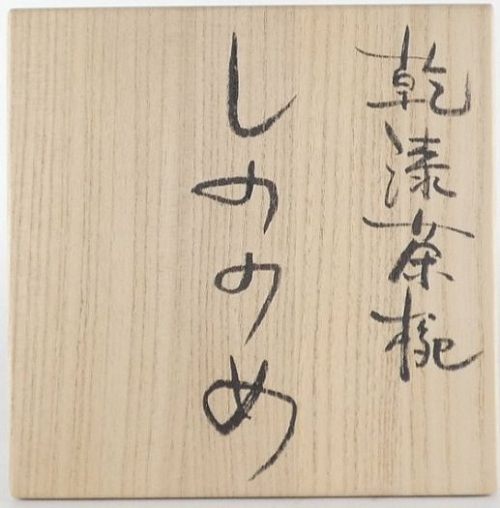 乾漆茶椀
しのゝめ